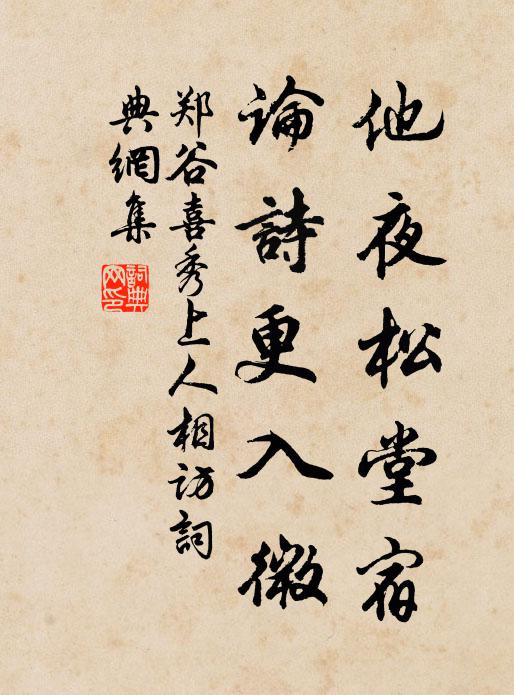 他夜松堂宿
論詩更入微
郑谷喜秀上人相访詞
典網集
詞典
网印